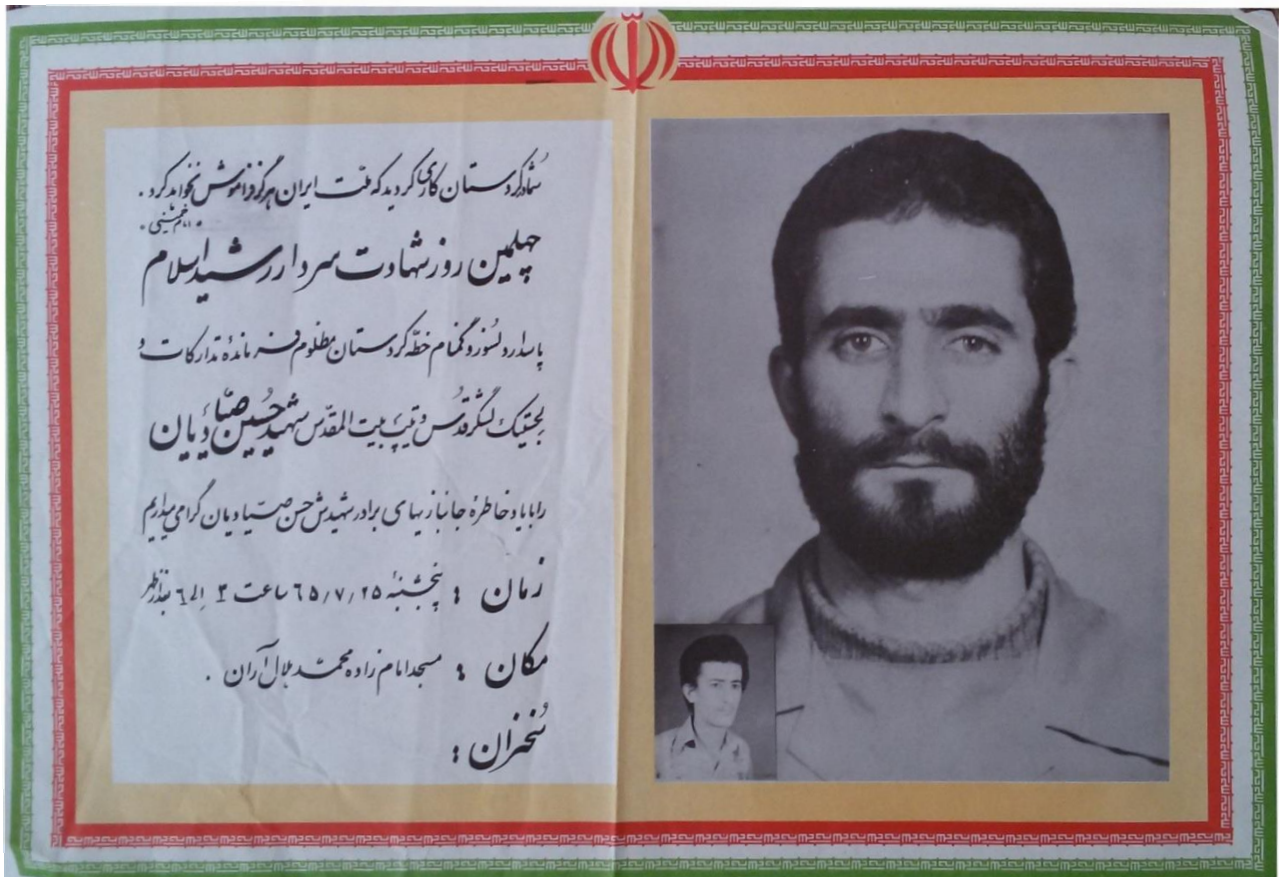 شما در کردستان کاری کردید که ملت ایران هرگز فراموش نخواهد کرد .
« امام خمینی »
چهلمین روز شهادت سردار رشید اسلام
پاسدار دلسوز و گمنام خطّه کردستان مظلوم فرماندهٔ تدارکات و
لجستیک لشگر قدس و تیپ بیت المقدّس شهید حُسین صیّادیان
را با یاد و خاطرهٔ جانبازیهای برادر شهیدش حسن صیّادیان گرامی میداریم
زمان : پنجشنبهٔ ۶۵/۷/۲۵ ساعت ۳ الی ۶ بعدازظهر
مکان : مسجد امام زاده محمّد هلال آران .
سُخنران :